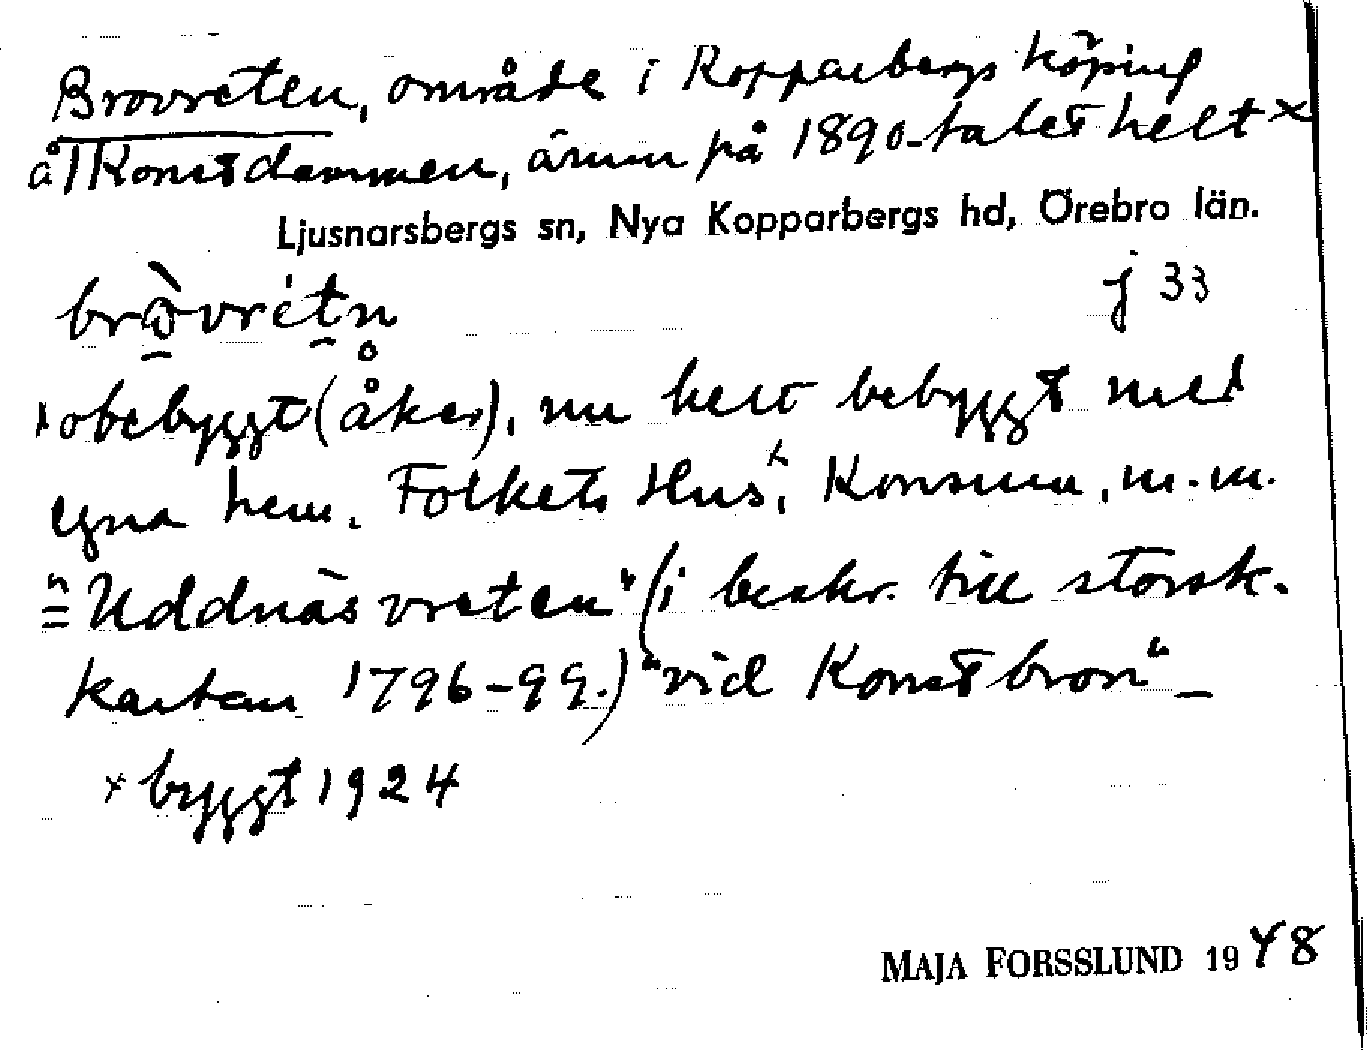 Brovreten, område i Kopparbergs köping
å/ Konstdammen, ännu på 1890-talet helt x
Ljusnarsbergs sn, Nya Kopparbergs hd, Örebro län.
bròvrétn̥ j 33
x obebyggt (åker), nu helt bebyggt med
egna hem, Folkets Hus,x Konsum, m.m.
= "Uddnäs vreten" (i beskr. till storsk.
kartan 1796-99.) "vid Konstbron" –
x byggt 1924
MAJA FORSSLUND 1948